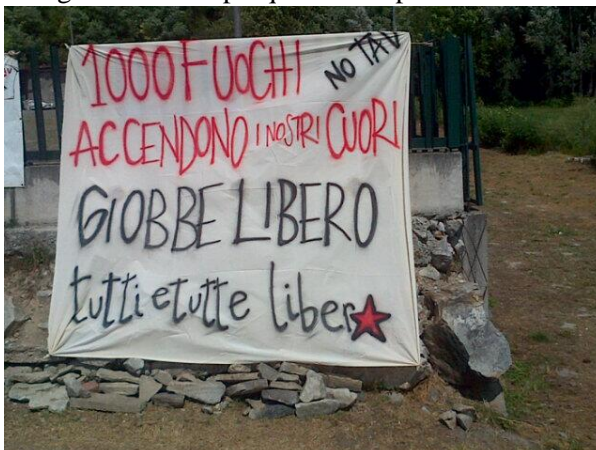 1000 FUOCHI
NO TAV
ACCENDONO I NOSTRI CUORI
GIOBBE LIBERO
tutti e tutte liber★